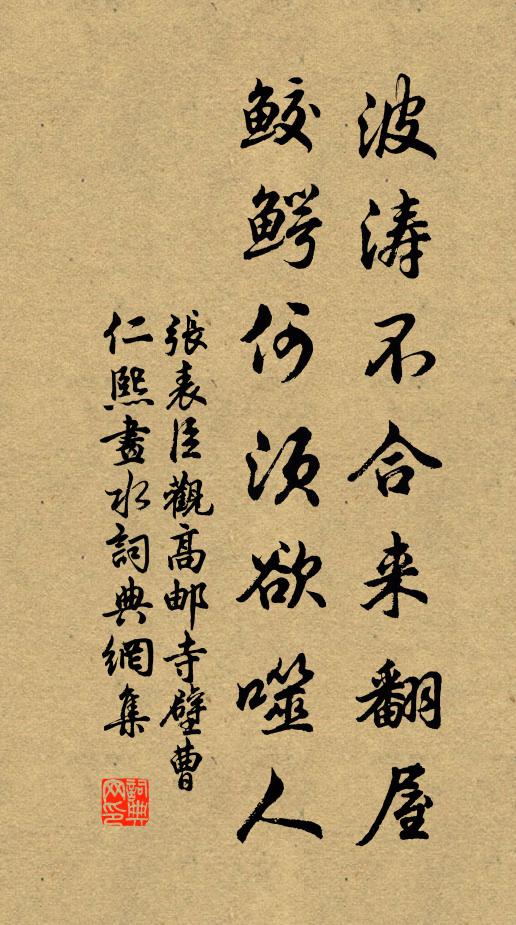 波涛不合来翻屋
鲛鳄何须欲噬人
張表臣觀高邮寺壁曹
仁熙畫水詞典網集
詞典网印